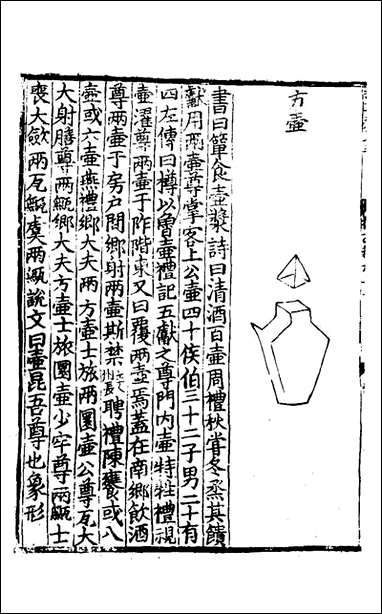 方壺
書曰簞食壺漿詩曰清酒百壺周禮秋嘗冬烝其饋
獻用兩壺尊掌客上公壺四十侯伯三十二子男二十有
四左傳曰樽以魯壺禮記五獻之尊門內壺特牲禮視
壺濯尊兩壺于阼階東又曰覆兩壺焉蓋在南鄉飲酒
尊兩壺于房戶間鄉射兩壺斯禁聘禮陳饔或八
壺或六壺燕禮鄉大夫兩方壺士旅兩圜壺公尊瓦大
大射膳尊兩甒鄉大夫方壺士旅圜壺少牢尊兩甒士
喪大斂兩瓦甒虞兩甒說文曰壺昆吾尊也象形